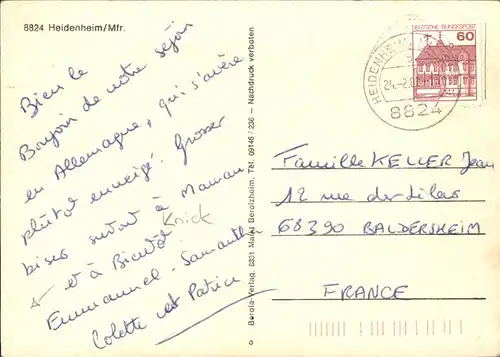 8824 Heidenheim/Mfr.
Bien le
Bonjour de notre séjour
en Allemagne, qui s'avère
plutôt enneigé. Grosses
bises surtout à Maman
et à Bientôt
Emmanuel - Samantha
Colette et Patrice
Knick
Berola-Verlag, 8831 Markt Berolzheim, Tel. 09146 / 236 – Nachdruck verboten
DEUTSCHE BUNDESPOST
60
HEIDENHEIM
8824
Famille KELLER Jean
12 rue des Lilas
68390 BALDERSHEIM
FRANCE